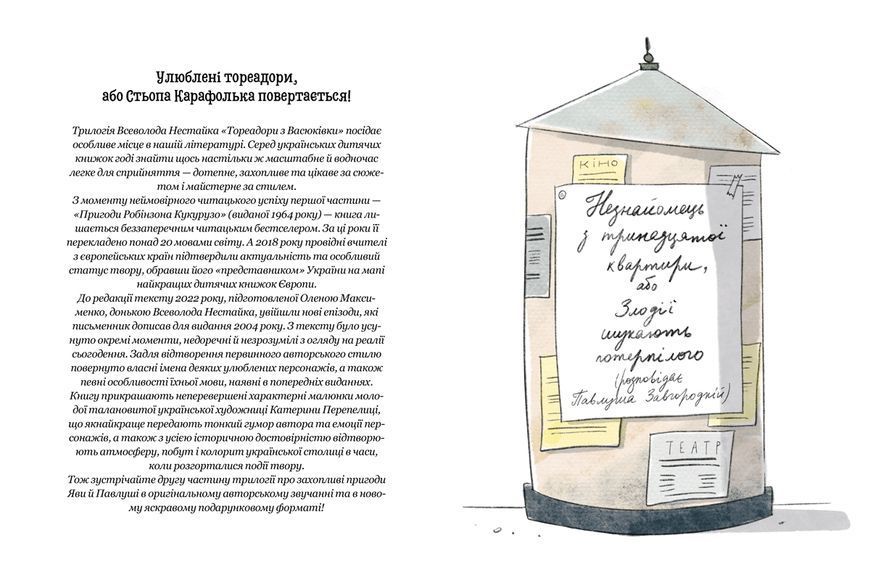 Улюблені тореадори,
або Стьопа Карафолька повертається!
Трилогія Всеволода Нестайка «Тореадори з Васюківки» посідає
особливе місце в нашій літературі. Серед українських дитячих
книжок годі знайти щось настільки ж масштабне й водночас
легке для сприйняття — дотепне, захопливе та цікаве за сюже-
том і майстерне за стилем.
З моменту неймовірного читацького успіху першої частини —
«Пригоди Робінзона Кукурузо» (виданої 1964 року) — книга ли-
шається беззаперечним читацьким бестселером. За ці роки її
перекладено понад 20 мовами світу. А 2018 року провідні вчителі
з європейських країн підтвердили актуальність та особливий
статус твору, обравши його «представником» України на мапі
найкращих дитячих книжок Європи.
До редакції тексту 2022 року, підготовленої Оленою Макси-
менко, донькою Всеволода Нестайка, увійшли нові епізоди, які
письменник дописав для видання 2004 року. З тексту було усу-
нуто окремі моменти, недоречні й незрозумілі з огляду на реалії
сьогодення. Задля відтворення первинного авторського стилю
повернуто власні імена деяких улюблених персонажів, а також
певні особливості їхньої мови, наявні в попередніх виданнях.
Книгу прикрашають неперевершені характерні малюнки моло-
дої талановитої української художниці Катерини Перепелиці,
що якнайкраще передають тонкий гумор автора та емоції пер-
сонажів, а також з усією історичною достовірністю відтворю-
ють атмосферу, побут і колорит української столиці в часи,
коли розгорталися події твору.
Тож зустрічайте другу частину трилогії про захопливі пригоди
Яви й Павлуші в оригінальному авторському звучанні та в ново-
му яскравому подарунковому форматі!
КІНО
Незнайомець
з тринадцятої
квартири,
або
Злодії
шукають
потерпілого
(розповідає
Павлуша Завгородній)
ТЕАТР